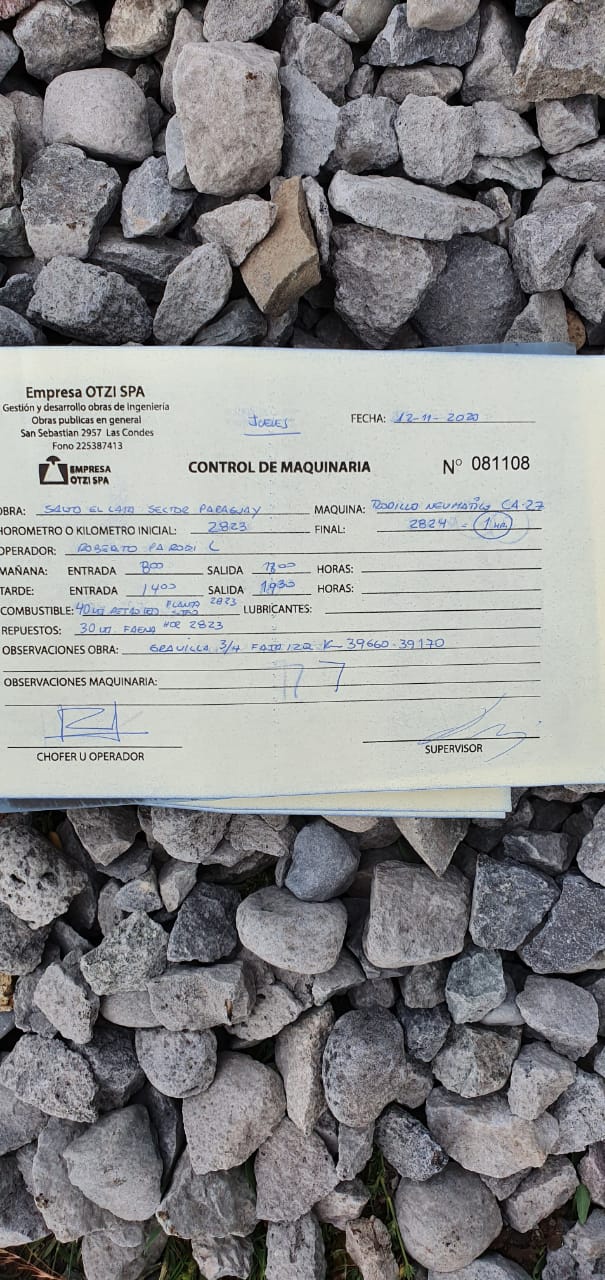 Empresa OTZI SPA
Gestión y desarrollo obras de ingeniería
Obras publicas en general
San Sebastian 2957 Las Condes
Fono 225387413
EMPRESA
OTZI SPA
JUEVES
FECHA: 12-11-2020
CONTROL DE MAQUINARIA
N° 081108
OBRA: SALTO EL LAJA SECTOR PARAGUAY MAQUINA: RODILLO NEUMATICO CA-27
HOROMETRO O KILOMETRO INICIAL: 2823 FINAL: 2824 = 1 HR
OPERADOR: ROBERTO PARODI L
MAÑANA: ENTRADA 800 SALIDA 1300 HORAS:
TARDE: ENTRADA 1400 SALIDA 1930 HORAS:
COMBUSTIBLE: 40 PLANTA 2823 LUBRICANTES:
REPUESTOS: 30 FAENA HOR 2823
OBSERVACIONES OBRA: GRAVILLA 3/4 FAJA IZQ K- 39660-39170
OBSERVACIONES MAQUINARIA:
CHOFER U OPERADOR
SUPERVISOR